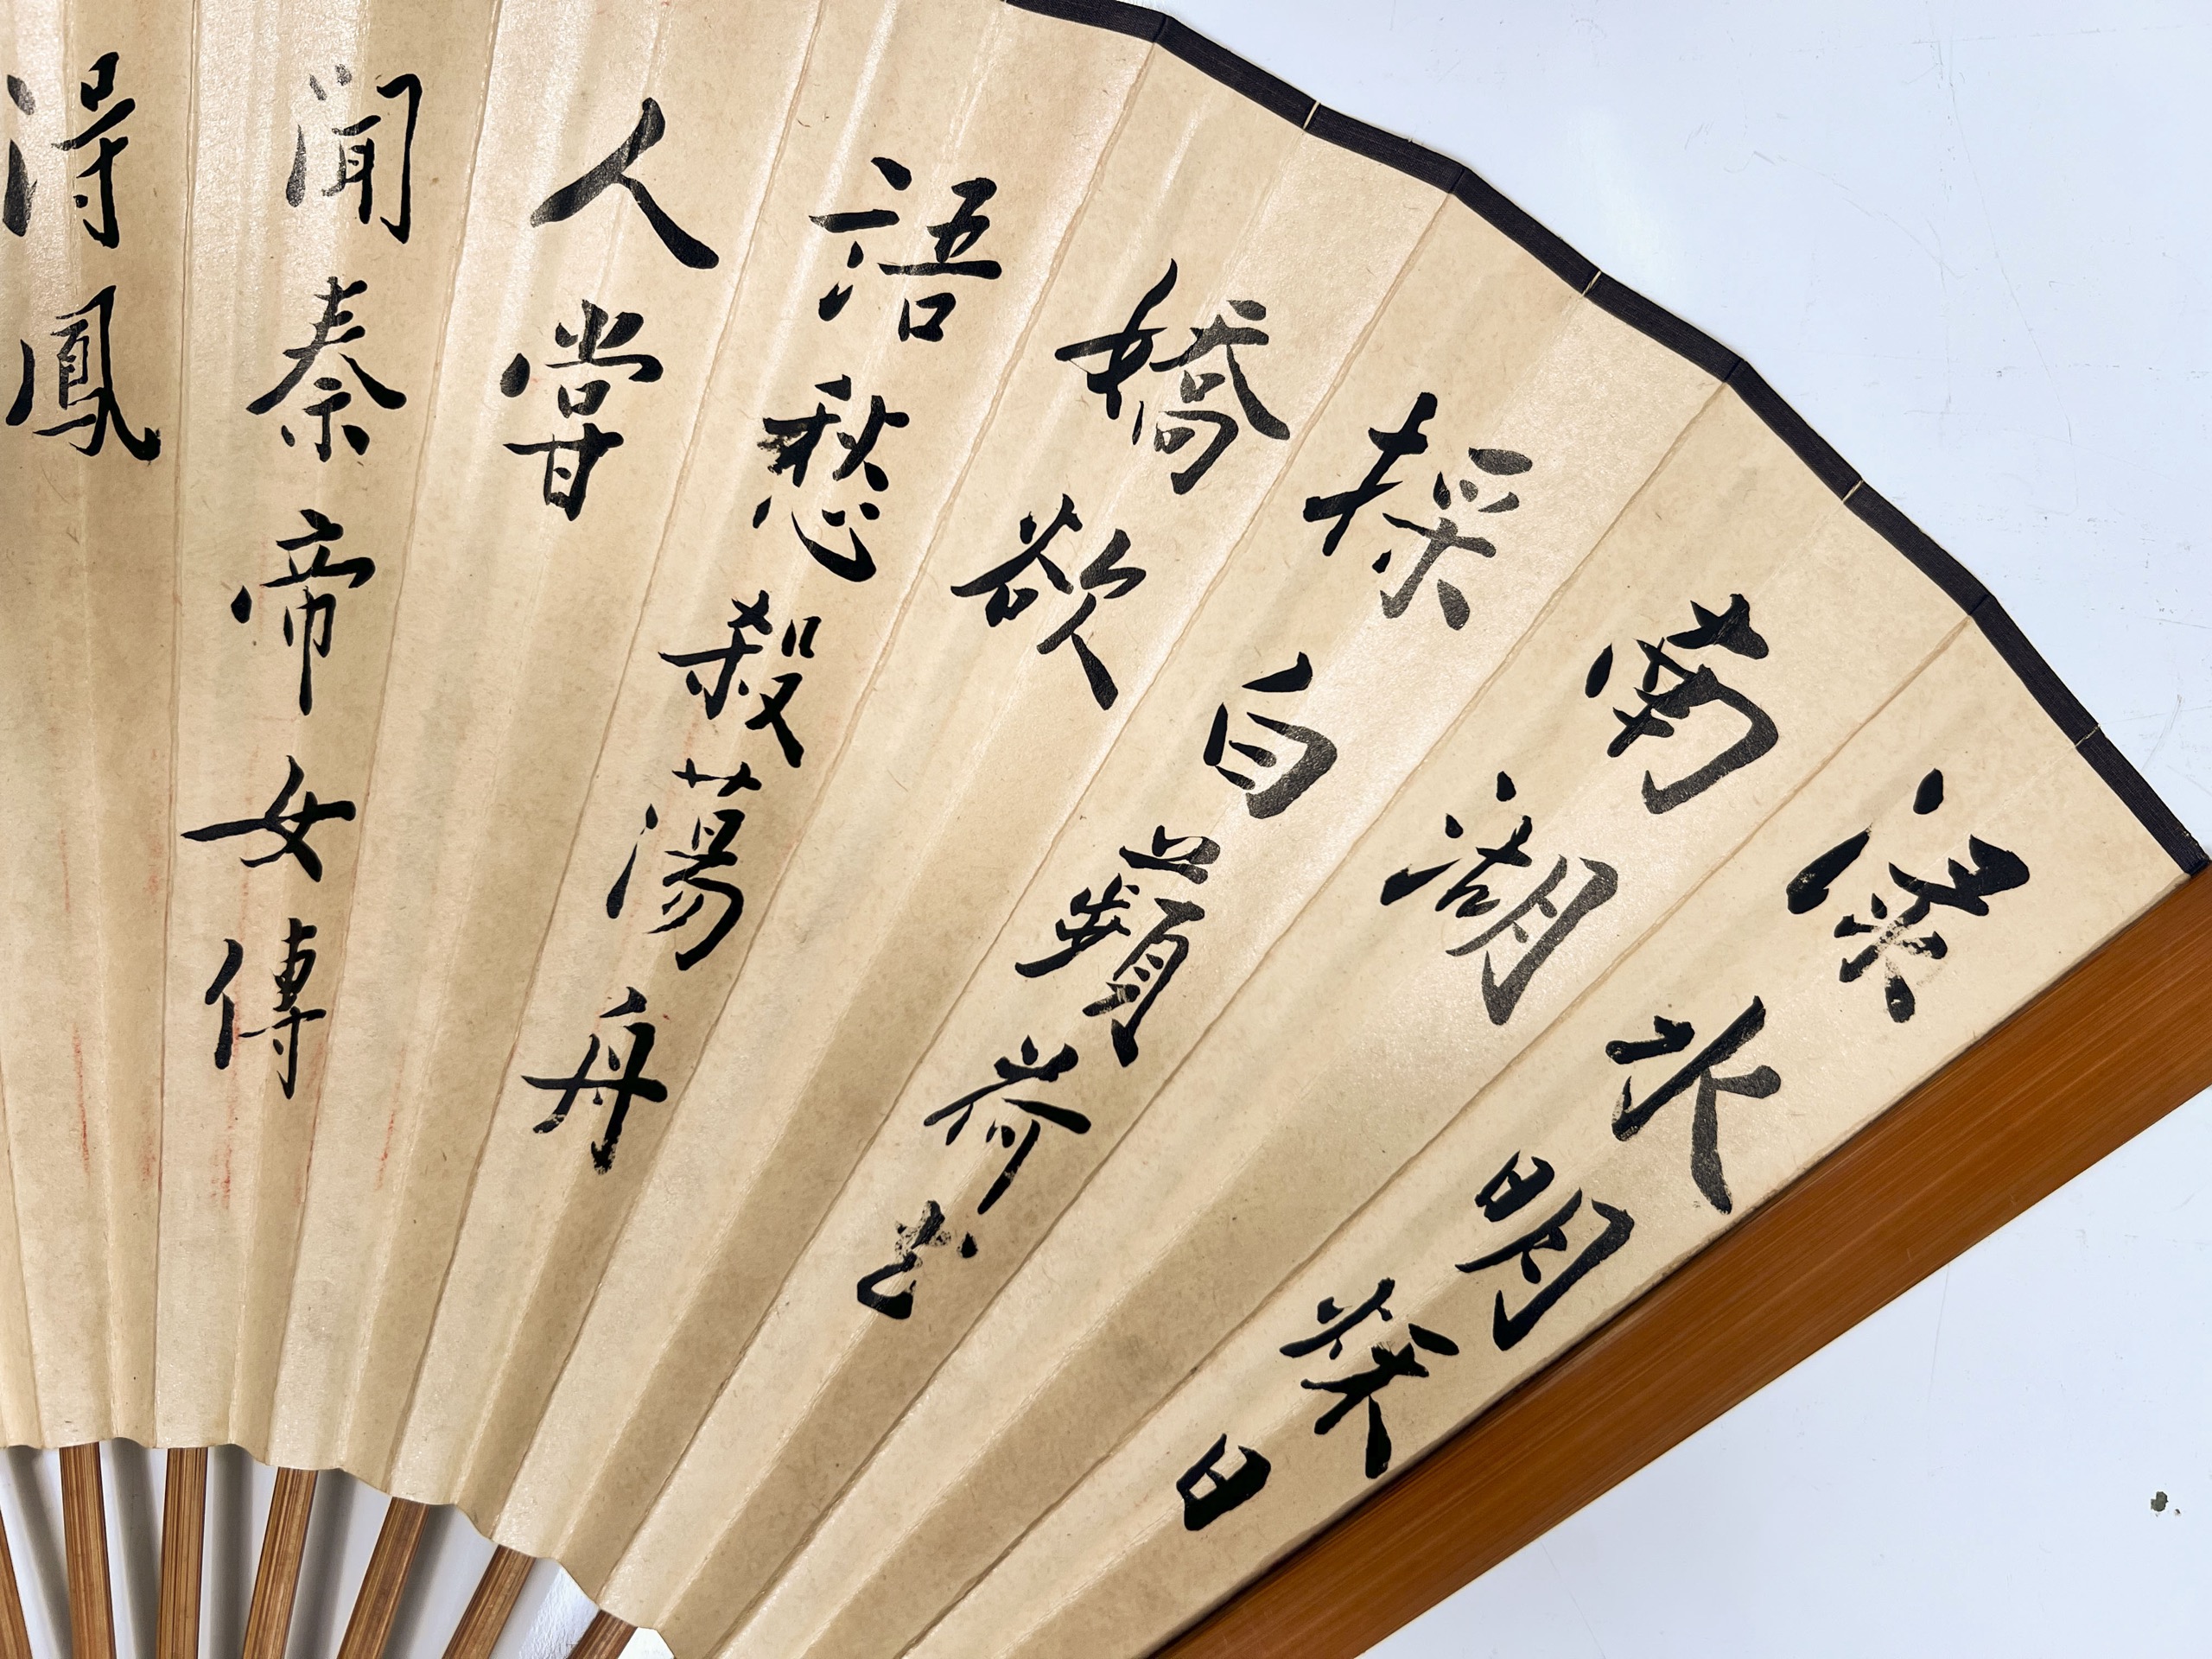 淥水明秋日
南湖
採白蘋荷花
嬌欲
語愁殺蕩舟
人嘗
聞秦帝女傳
得鳳